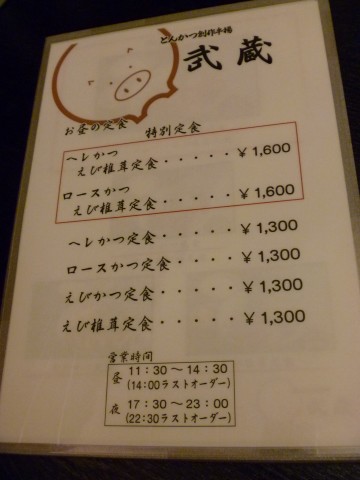 とんかつ創作串揚
武蔵
お昼の定食
特別定食
ヘレかつ
えび椎茸定食・・・・・¥1,600
ロースかつ
えび椎茸定食・・・・・¥1,600
ヘレかつ定食・・・・・¥1,300
ロースかつ定食・・・・・¥1,300
えびかつ定食・・・・・¥1,300
えび椎茸定食・・・・・¥1,300
営業時間
昼 11:30～14:30
(14:00ラストオーダー)
夜 17:30～23:00
(22:30ラストオーダー)